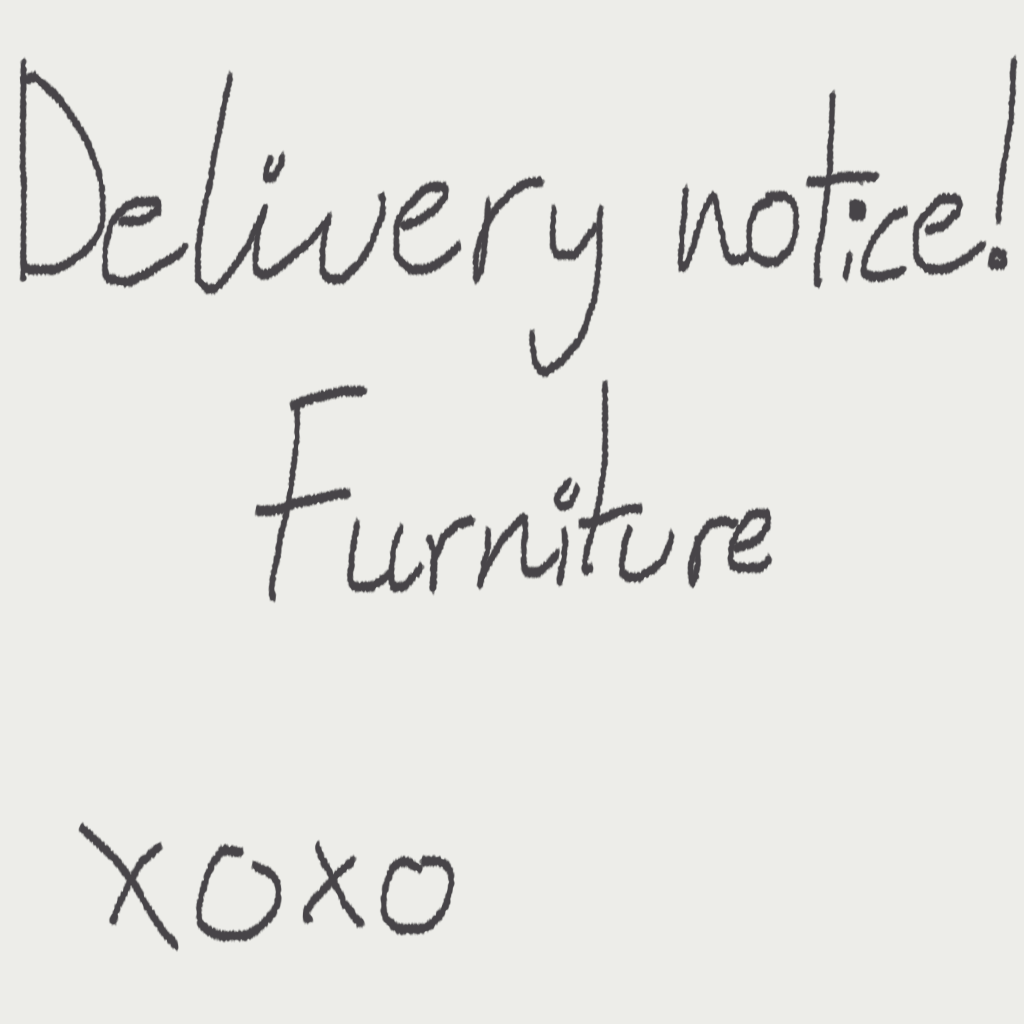 Delivery notice!
Furniture
xoxo